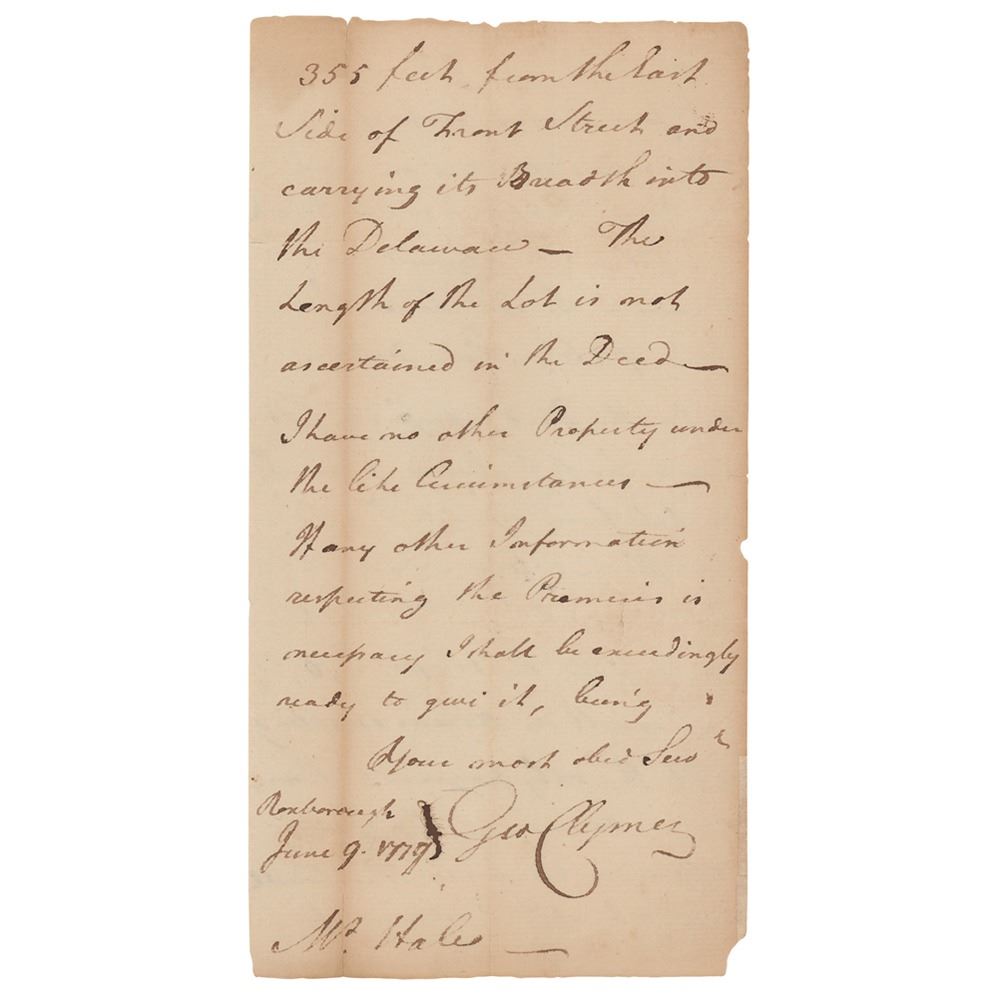 355 feet from the East
Side of Front Street and
carrying its Breadth into
the Delaware — The
Length of the Lot is not
ascertained in the Deed —
I have no other Property under
the like Circumstances —
If any other Information
respecting the Premises is
necessary I shall be exceedingly
ready to give it, being
Your most obed Servt
Roxborough
Geo Clymer
June 9. 1779
Mr. Hale —